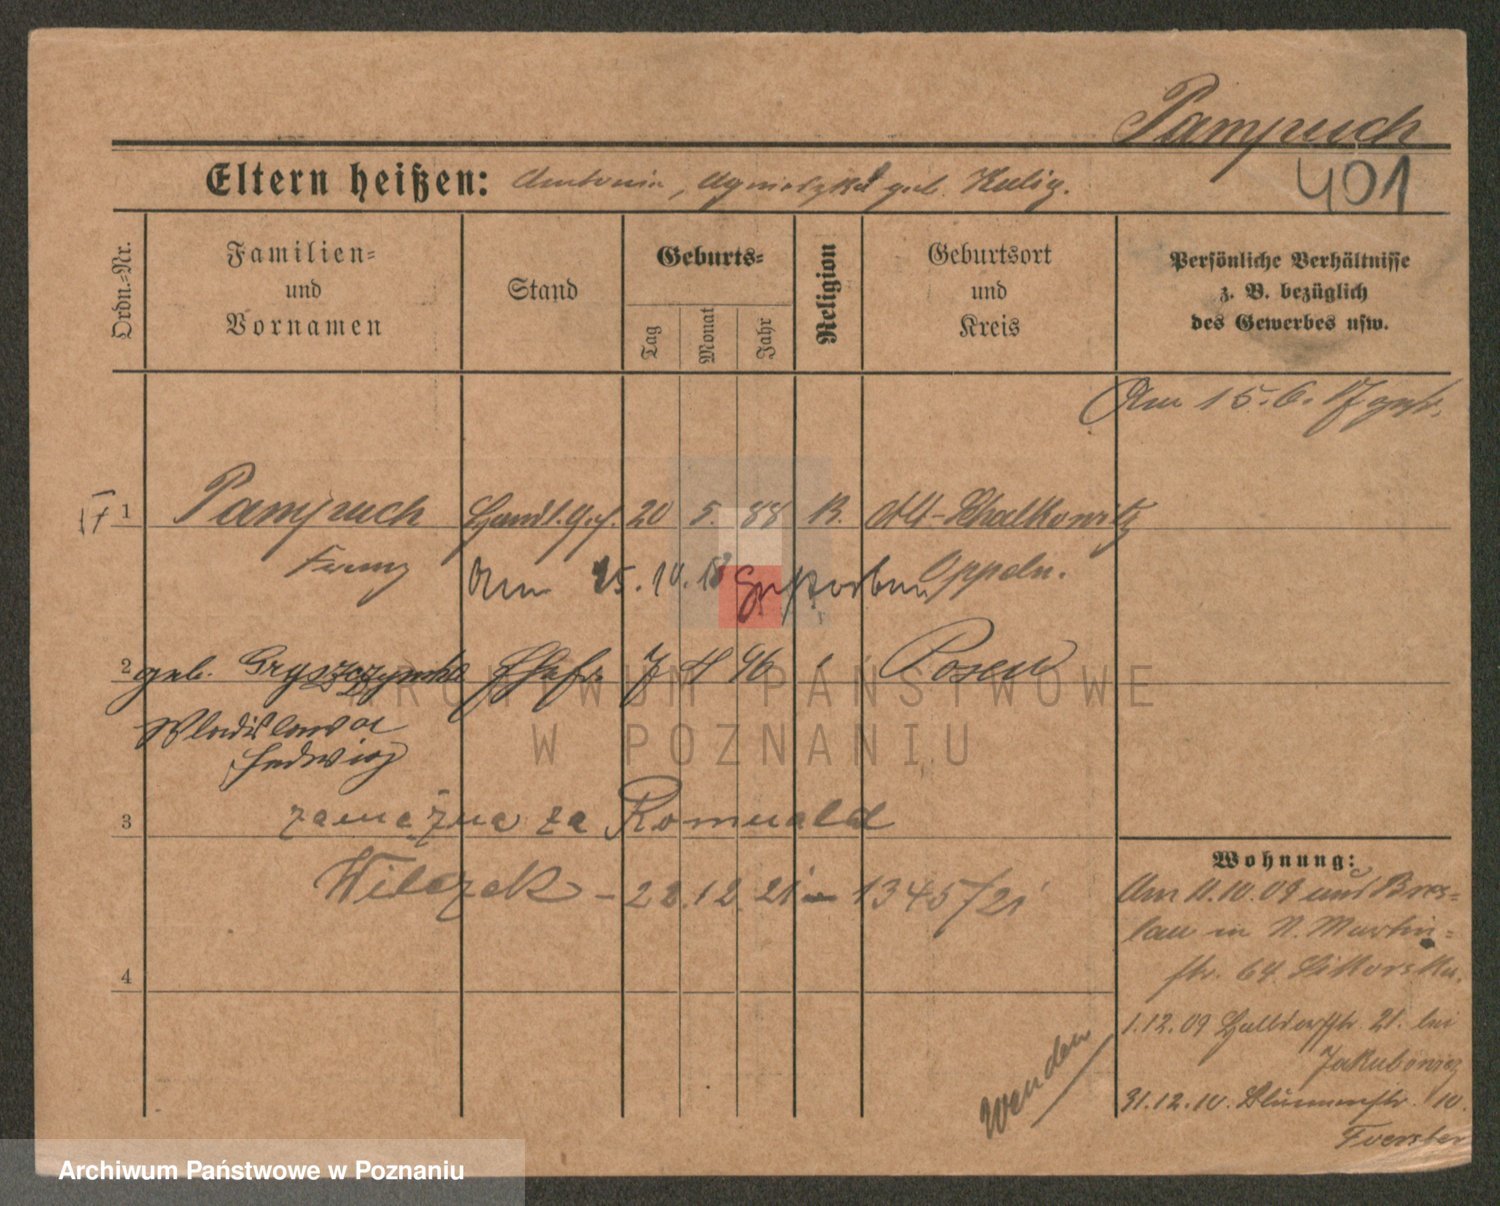 Pampuch
Eltern heißen: Antonin, Agnieszka geb. Kulig.
401
Ordn.=Nr.
Familien=
und
Vornamen
Stand
Geburts=
Tag
Monat
Jahr
Religion
Geburtsort
und
Kreis
Persönliche Verhältnisse
z. B. bezüglich
des Gewerbes usw.
Am 15.6.17
1 Pampuch Handl. 20 5. 88 K. Alt-Schalkowitz
Franz Am 15.10.18 Gestorben Oppeln.
2 geb. Ehefr. 7 4 96 Posen
Wladislawa
Hedwig
3 zamężna za Romuald
Wilczek - 22.12.21 - 1345/21
4
Wohnung:
Am 11.10.09 aus Bres=
lau in St. Martin=
str. 64 Sikorska.
1.12.09 Halldorfstr. 21. bei
Jakubowicz
31.12.10. Blumenstr. 10.
Foerster
Wenden
ARCHIWUM PAŃSTWOWE
W POZNANIU
Archiwum Państwowe w Poznaniu